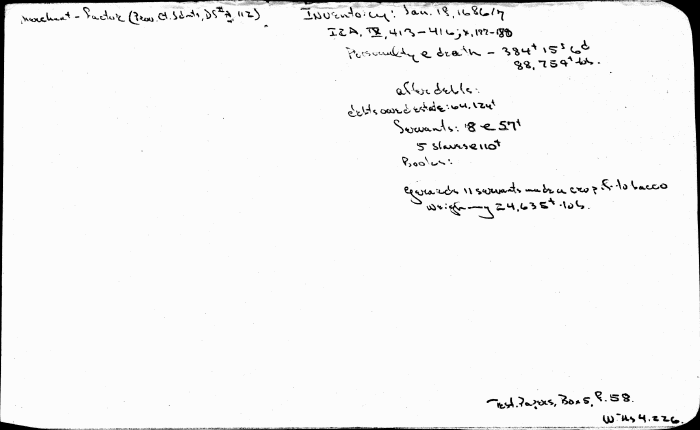 merchant - Factor (Prov. Ct. Jdmts, DS II A, 112)
Inventory: Jan. 19, 1686/7
I & A, IX, 413-416; X, 197-199
Personalty @ death - 384£ 15s 6d
88,759# tob.
after debts:
debts owed estate: 64,124#
Servants: 8 @ 57£
5 slaves @ 110£
Books:
11 servants made a crop of tobacco
weighing 24,635# tob.
Test. Papers, Box 5, f. 58.
Wills 4.226.